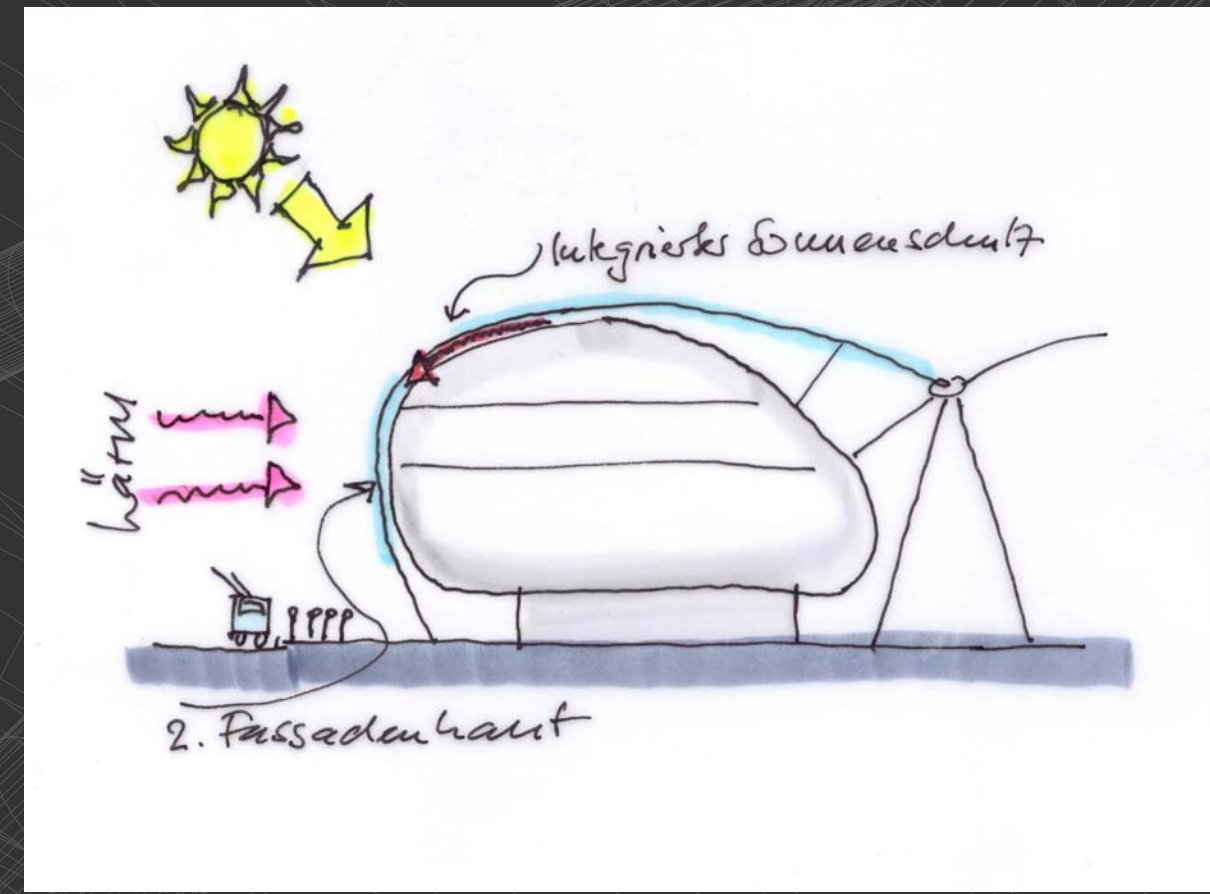 Integrierter Sonnenschutz
Lärm
2. Fassadenhaut